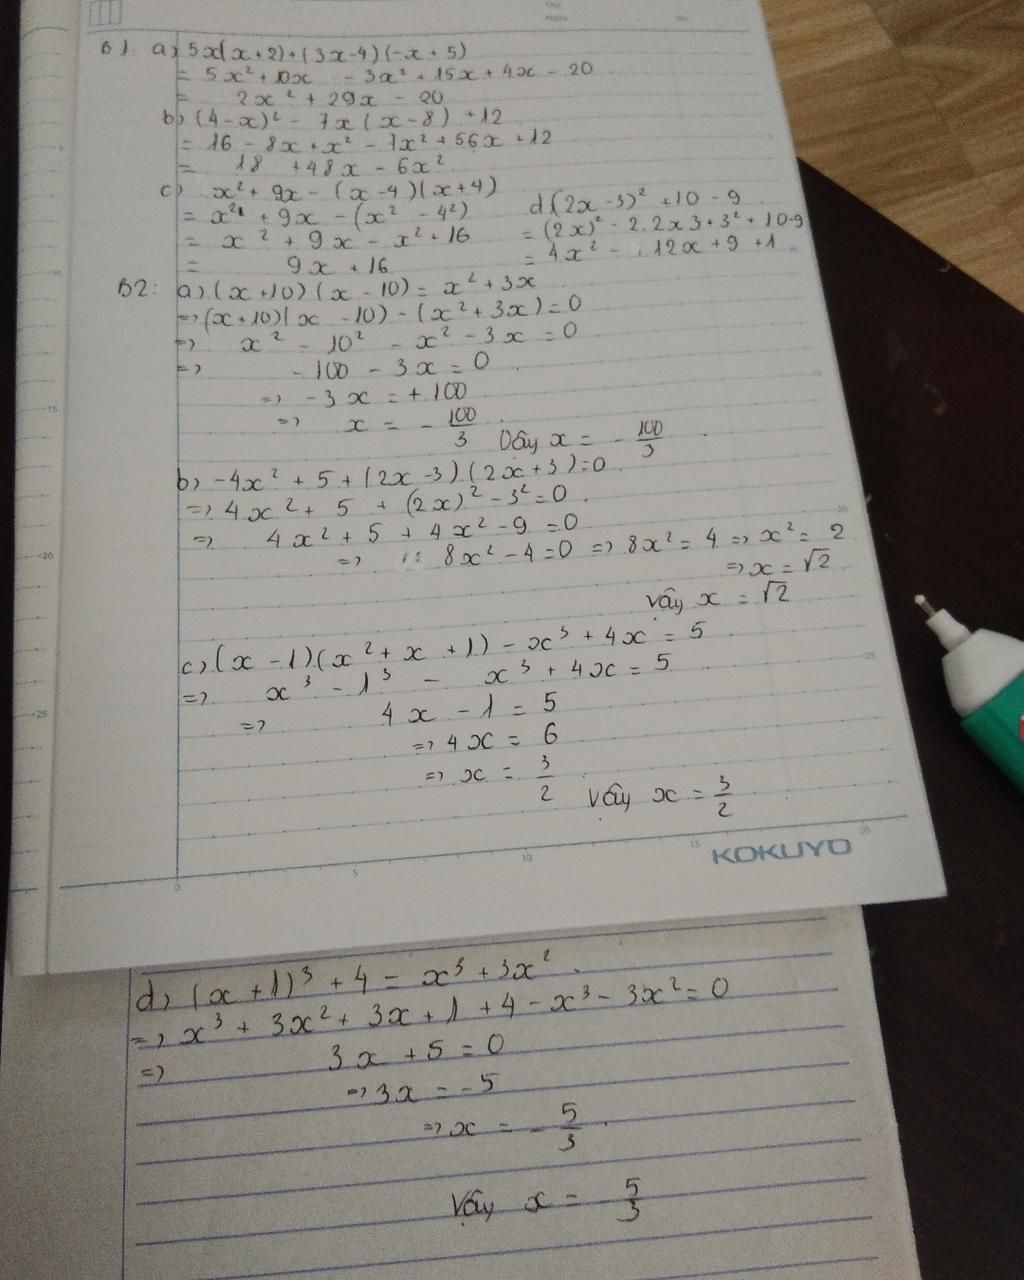 B1. a) 5x(x+2)+(3x-4)(-x+5)
= 5x²+10x - 3x²+15x+4x-20
= 2x²+29x-20
b) (4-x)² - 7x(x-8)+12
= 16-8x+x²-7x²+56x+12
= 18+48x-6x²
c) x²+9x-(x-4)(x+4)
= x²+9x-(x²-4²)
= x²+9x-x²+16
= 9x+16
d) (2x-3)²+10-9
= (2x)²-2.2x3+3²+10-9
= 4x²-12x+9+1
B2: a) (x+10)(x-10)=x²+3x
=> (x+10)(x-10)-(x²+3x)=0
=> x²-10²-x²-3x=0
=> -100-3x=0
=> -3x=+100
=> x=-100/3 Vậy x=-100/3.
b) -4x²+5+(2x-3)(2x+3)=0
=> 4x²+5+(2x)²-3²=0.
=> 4x²+5+4x²-9=0
=> 8x²-4=0 => 8x²=4 => x²=2
=> x=√2
Vậy x=√2
c) (x-1)(x²+x+1)-x³+4x=5
=> x³-1³-x³+4x=5
=> 4x-1=5
=> 4x=6
=> x=3/2
Vậy x=3/2
KOKUYO
d) (x+1)³+4=x³+3x².
=> x³+3x²+3x+1+4-x³-3x²=0
=> 3x+5=0
=> 3x=-5
=> x=-5/3.
Vậy x=-5/3